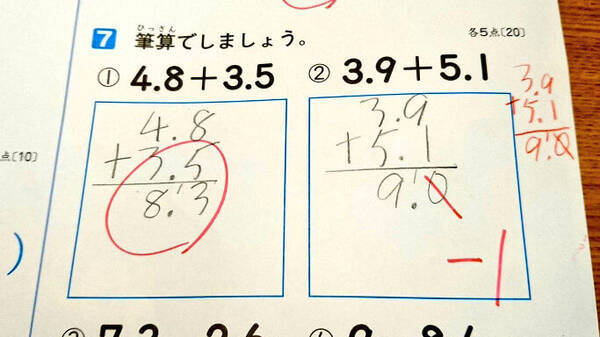 7 筆算でしましょう。 各5点〔20〕
ひっさん
① 4.8+3.5 ② 3.9+5.1
4.8
+3.5
8.3
3.9
+5.1
9.0
-1
3.9
+5.1
9.0
点〔10〕
)